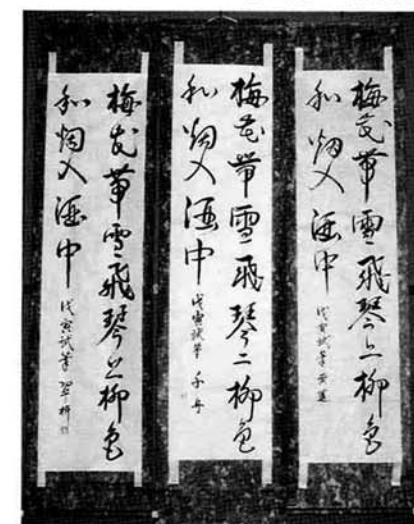 梅花帯雪飛琴上柳色
和烟入酒中 戊寅試筆
梅花帯雪飛琴上柳色
和烟入酒中 戊寅試筆 千舟
梅花帯雪飛琴上柳色
和烟入酒中 戊寅試筆